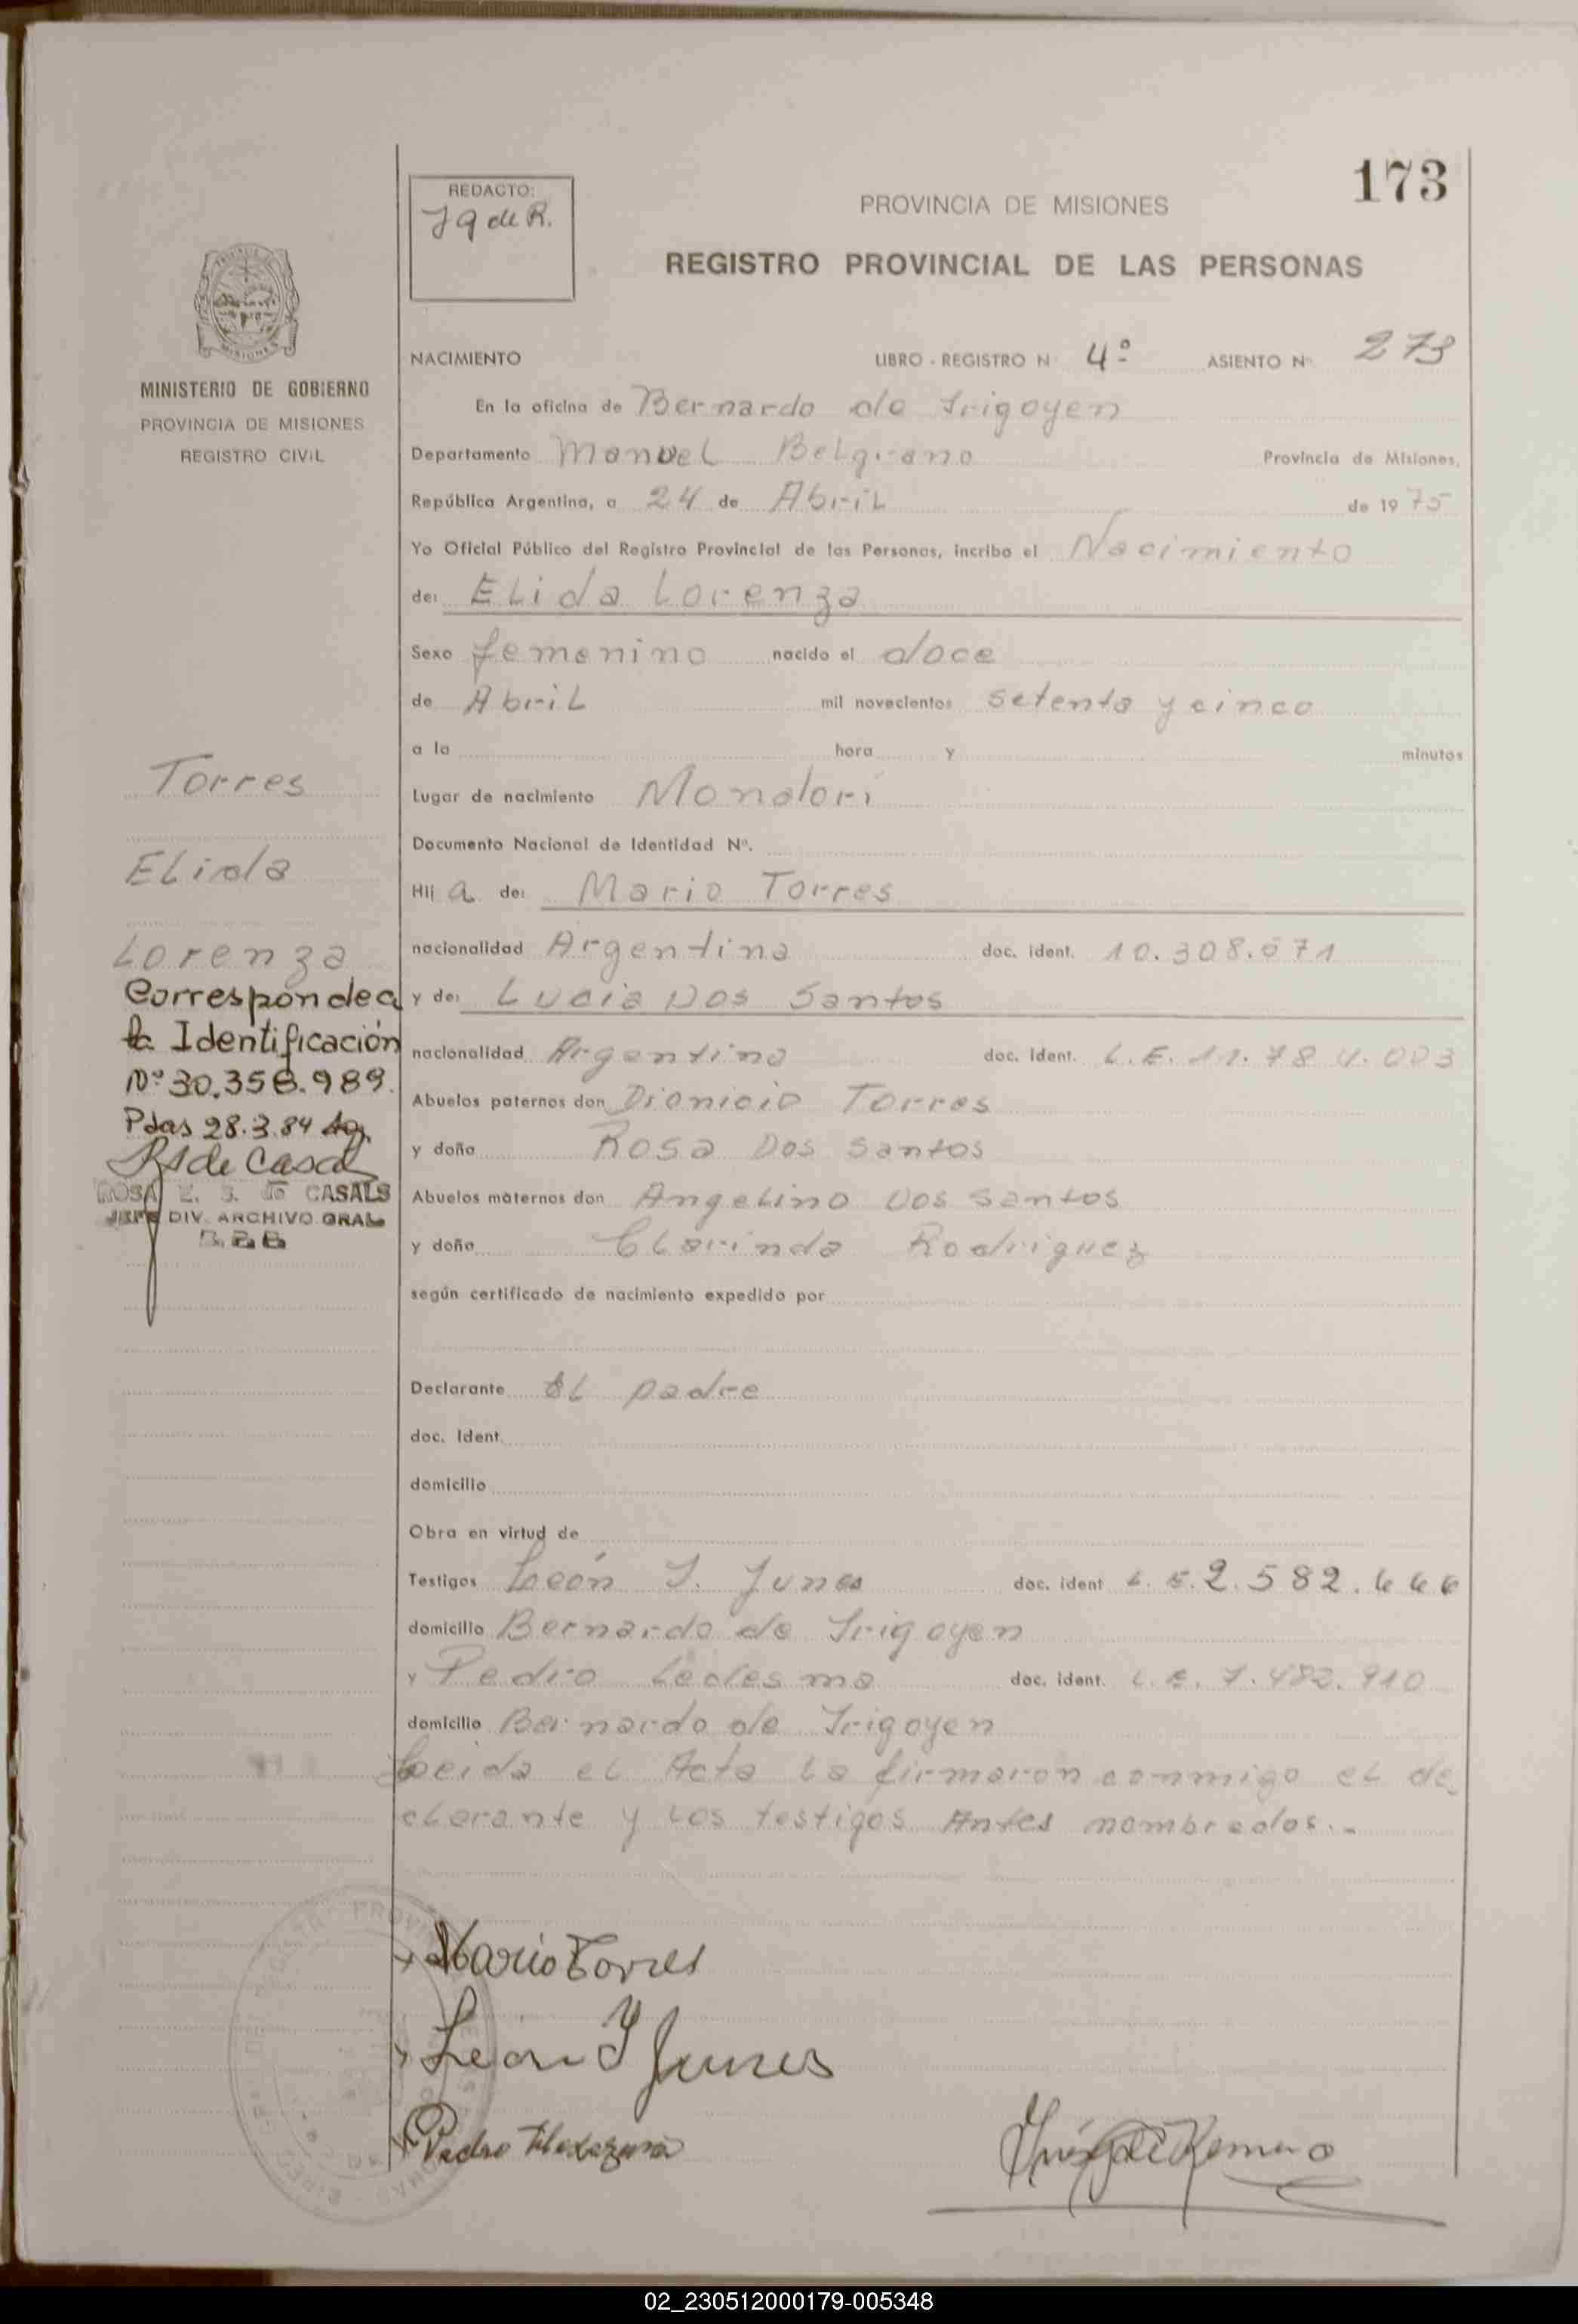 173
REDACTO:
PROVINCIA DE MISIONES
REGISTRO PROVINCIAL DE LAS PERSONAS
MINISTERIO DE GOBIERNO
PROVINCIA DE MISIONES
REGISTRO CIVIL
NACIMIENTO LIBRO - REGISTRO N 4º ASIENTO Nº 273
En la oficina de Bernardo de Irigoyen
Departamento Manuel Belgrano Provincia de Misiones,
República Argentina, a 24 de Abril de 1975
Yo Oficial Público del Registro Provincial de las Personas, inscribo el Nacimiento
de: Elida Lorenza
Sexo femenino nacido el doce
de Abril mil novecientos setenta y cinco
a la hora y minutos
Lugar de nacimiento Mondori
Documento Nacional de Identidad Nº.
Hij a de: Mario Torres
nacionalidad Argentina doc. ident. 10.308.671
y de: Lucia Dos Santos
nacionalidad Argentina doc. ident. L.E. 11.784.003
Abuelos paternos don Dionicio Torres
y doña Rosa Dos Santos
Abuelos maternos don Angelino Dos Santos
y doña Clarinda Rodriguez
según certificado de nacimiento expedido por
Declarante el padre
doc. Ident.
domicilio
Obra en virtud de
Testigos León I. Junes doc. ident L.E. 2.582.666
domicilio Bernardo de Irigoyen
y Pedro Ledesma doc. ident. L.E. 7.482.910
domicilio Bernardo de Irigoyen
Leida el Acta la firmaron conmigo el de
clarante y los testigos Antes nombrados.-
Torres
Elida
Lorenza
Corresponde a
la Identificación
Nº 30.358.989.
Pdas 28.3.84
R S de Casals
ROSA E. S. de CASALS
JEFE DIV. ARCHIVO GRAL
Mario Torres
León I Junes
Pedro
02_230512000179-005348